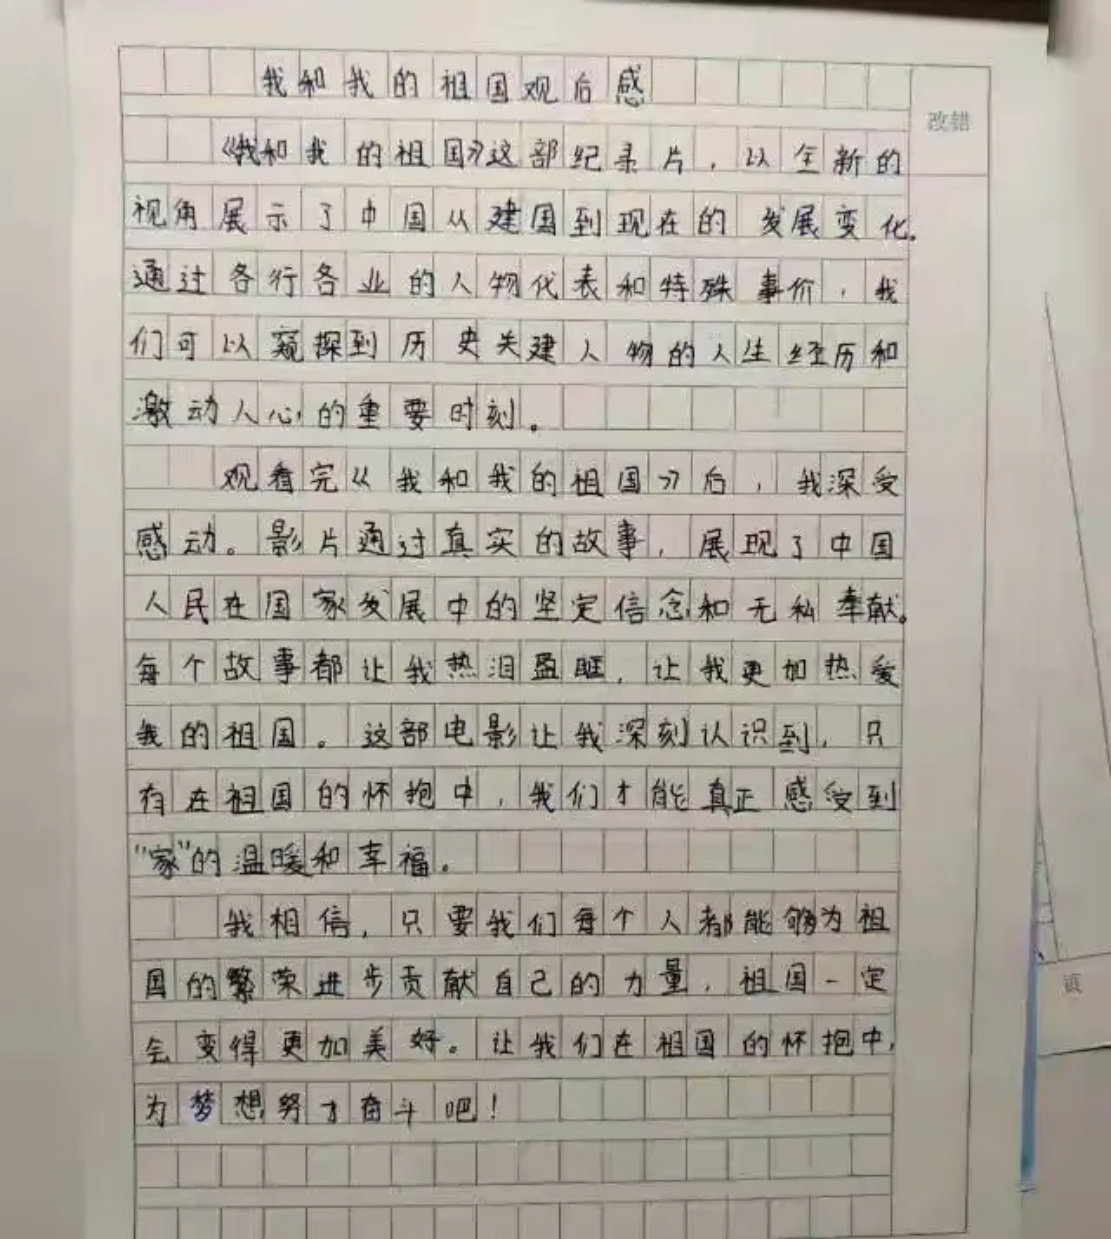 我和我的祖国观后感
改错
《我和我的祖国》这部纪录片，以全新的
视角展示了中国从建国到现在的发展变化.
通过各行各业的人物代表和特殊事价，我
们可以窥探到历史关建人物的人生经历和
激动人心的重要时刻。
观看完《我和我的祖国》后，我深受
感动。影片通过真实的故事，展现了中国
人民在国家发展中的坚定信念和无私奉献。
每个故事都让我热泪盈眶，让我更加热爱
我的祖国。这部电影让我深刻认识到，只
有在祖国的怀抱中，我们才能真正感受到
"家"的温暖和幸福。
我相信，只要我们每个人都能够为祖
国的繁荣进步贡献自己的力量，祖国一定
会变得更加美好。让我们在祖国的怀抱中,
为梦想努力奋斗吧！